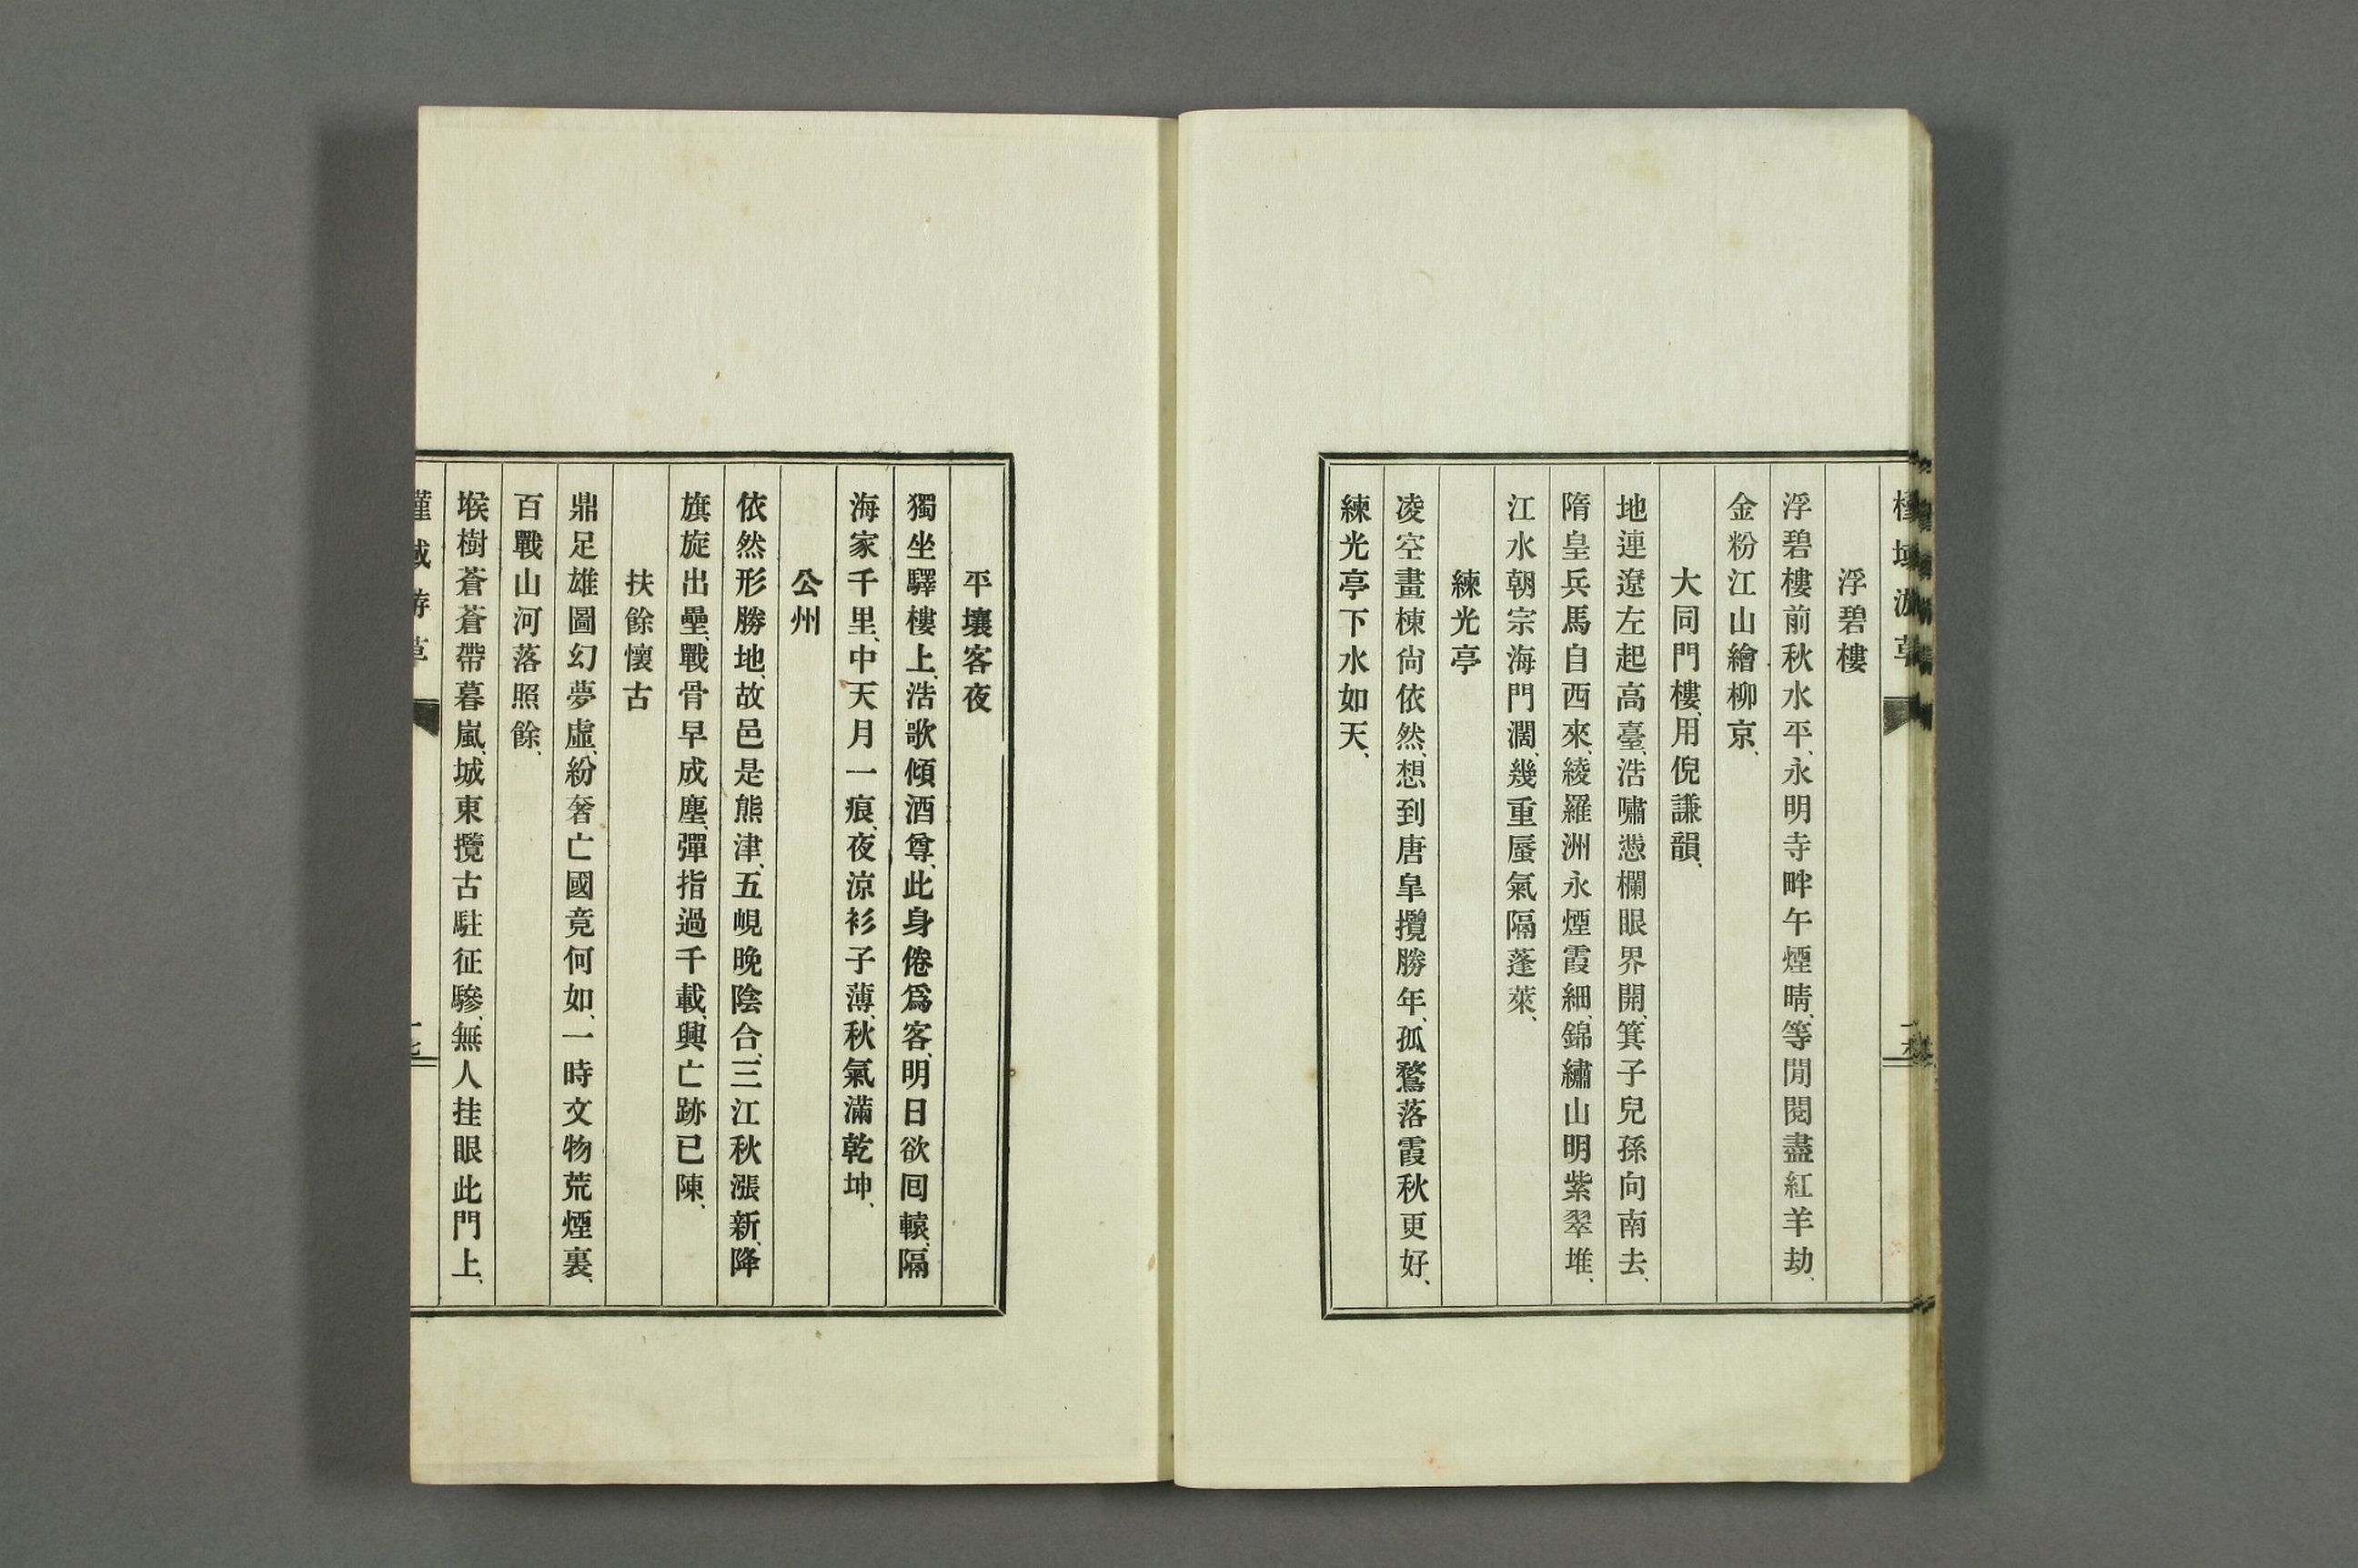 槿域游草
浮碧樓
浮碧樓前秋水平、永明寺畔午煙晴、等閒閱盡紅羊劫、
金粉江山繪柳京、
大同門樓、用倪謙韻、
地連遼左起高臺、浩嘯憑欄眼界開、箕子兒孫向南去、
隋皇兵馬自西來、綾羅洲永煙霞細、錦繡山明紫翠堆、
江水朝宗海門濶、幾重蜃氣隔蓬萊、
練光亭
凌空畫棟尙依然、想到唐皐攬勝年、孤鶩落霞秋更好、
練光亭下水如天、
平壤客夜
獨坐驛樓上、浩歌傾酒尊、此身倦爲客、明日欲囘轅、隔
海家千里、中天月一痕、夜涼衫子薄、秋氣滿乾坤、
公州
依然形勝地、故邑是熊津、五峴晩陰合、三江秋漲新、降
旗旋出壘、戰骨早成塵、彈指過千載、興亡跡已陳、
扶餘懷古
鼎足雄圖幻夢虛、紛奢亡國竟何如、一時文物荒煙裏、
百戰山河落照餘、
堠樹蒼蒼帶暮嵐、城東攬古駐征驂、無人挂眼此門上、
槿域游草
十七